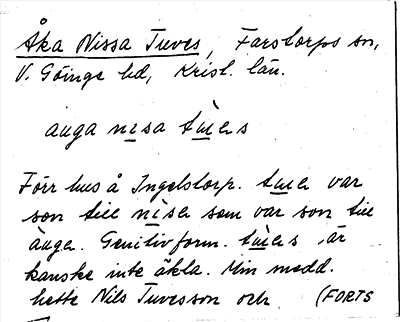 Åka Nissa Tuves, Farstorps sn,
V. Göinge hd, Krist. län.
åuga nisa tues
Förr hus å Ingelstorp. tue var
son till nise som var son till
åuge. Genitivform. tues är
kanske inte äkta. Min medd.
hette Nils Tuvesson och (FORTS